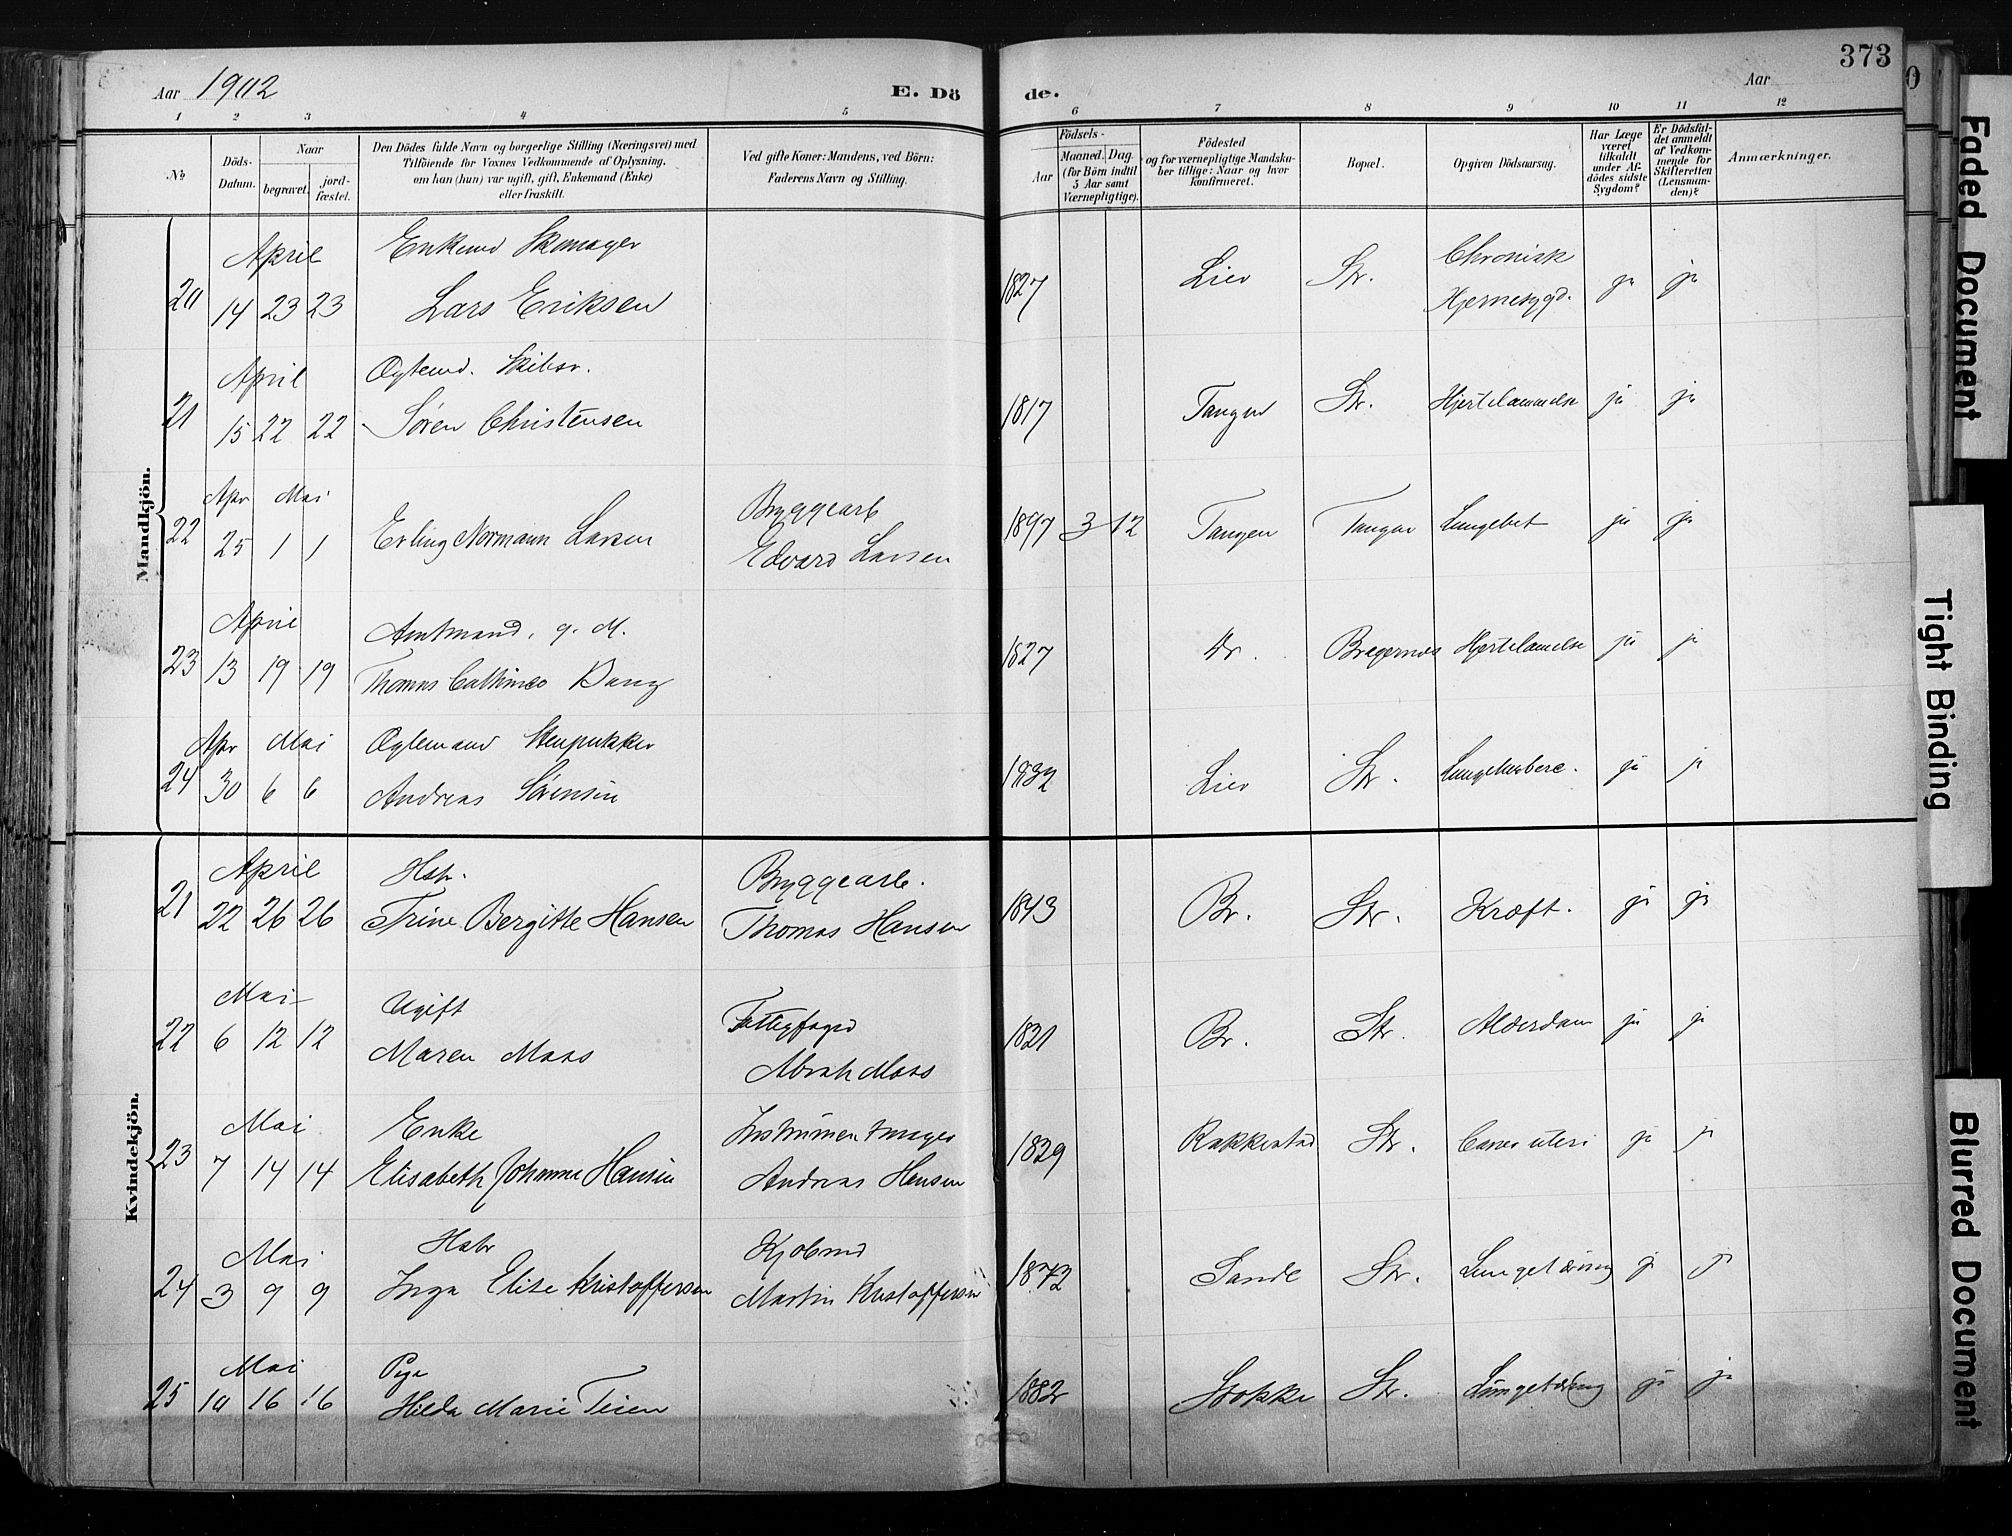 373
Aar 1902
E. Dö
de.
Aar
1 2 3 4 5 6 7 8 9 10 11 12
№
Döds-
Datum.
Naar
begravet.
jord-
fæstet.
Den Dödes fulde Navn og borgerlige Stilling (Næringsvei) med
Tilföiende for Voxnes Vedkommende af Oplysning,
om han (hun) var ugift, gift, Enkemand (Enke)
eller fraskilt.
Ved gifte Koner: Mandens, ved Börn:
Faderens Navn og Stilling.
Födsels-
Aar
Maaned. Dag.
(for Börn indtil
5 Aar samt
Værnepligtige).
Födested
og for værnepligtige Mandska-
ber tillige: Naar og hvor
konfirmeret.
Bopæl.
Opgiven Dödsaarsag.
Har Læge
været
tilkaldt
under Af-
dödes sidste
Sygdom?
Er Dödsfal-
det anmeldt
af Vedkom-
mende for
Skifteretten
(Lensman-
den)?
Anmærkninger.
Mandkjön.
April
Enkemd Skomager
Chronisk
20 14 23 23 Lars Eriksen 1827 Lier Str. Hjernesygd. ja ja
April
Ogtemd. Skibsr.
21 15 22 22 Sören Christensen 1817 Tangen Str. Hjertelammelse ja ja
Apr Mai
Bryggearb
22 25 1 1 Erling Normann Larsen Edvard Larsen 1897 3 12 Tangen Tangen Lungebet ja ja
April
Amtmand, g. M.
23 13 19 19 Thomas Cathinco Bang 1827 Dr. Bragernæs Hjertelamelse ja ja
Apr Mai
Ogtemand Stenpukker
24 30 6 6 Andreas Sörensen 1832 Lier Str. ja ja
Kvindekjön.
April
Hstr.
Bryggearb.
21 22 26 26 Trine Bergitte Hansen Thomas Hansen 1843 Br. Str. Kræft. ja ja
Mai
Ugift
Fattigfoged
22 6 12 12 Maren Maas Abrah Maas 1821 Br. Str. Alderdom ja ja
Mai
Enke
Instrumentmager
23 7 14 14 Elisabeth Johanne Hansen Andreas Hansen 1829 Rakkestad Str. Cancer uteri ja ja
Mai
Hstr
Kjöbmd
24 3 9 9 Inga Elise Kristoffersen Martin Kristoffersen 1872 Sande Str. Lungetæring ja ja
Mai
Pige
25 10 16 16 Hilda Marie Teien 1882 Stokke Str. Lungetæring ja ja
Faded Document
Tight Binding
Blurred Document